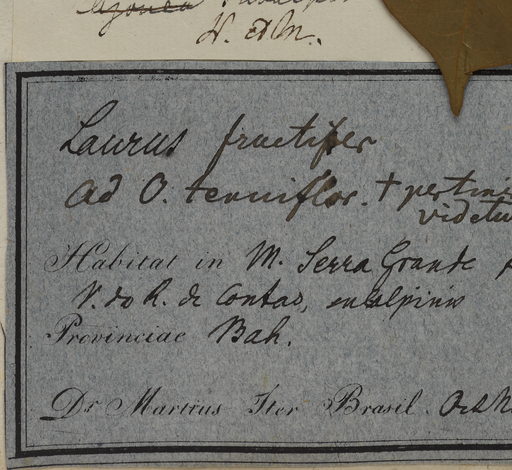 H. & M.
Laurus fructifer
ad O. tenuiflor. + pertine
videtu
Habitat in M. Serra Grande
V. do R. de Contas,
Provinciae Bah.
Dr Martius Iter Brasil.